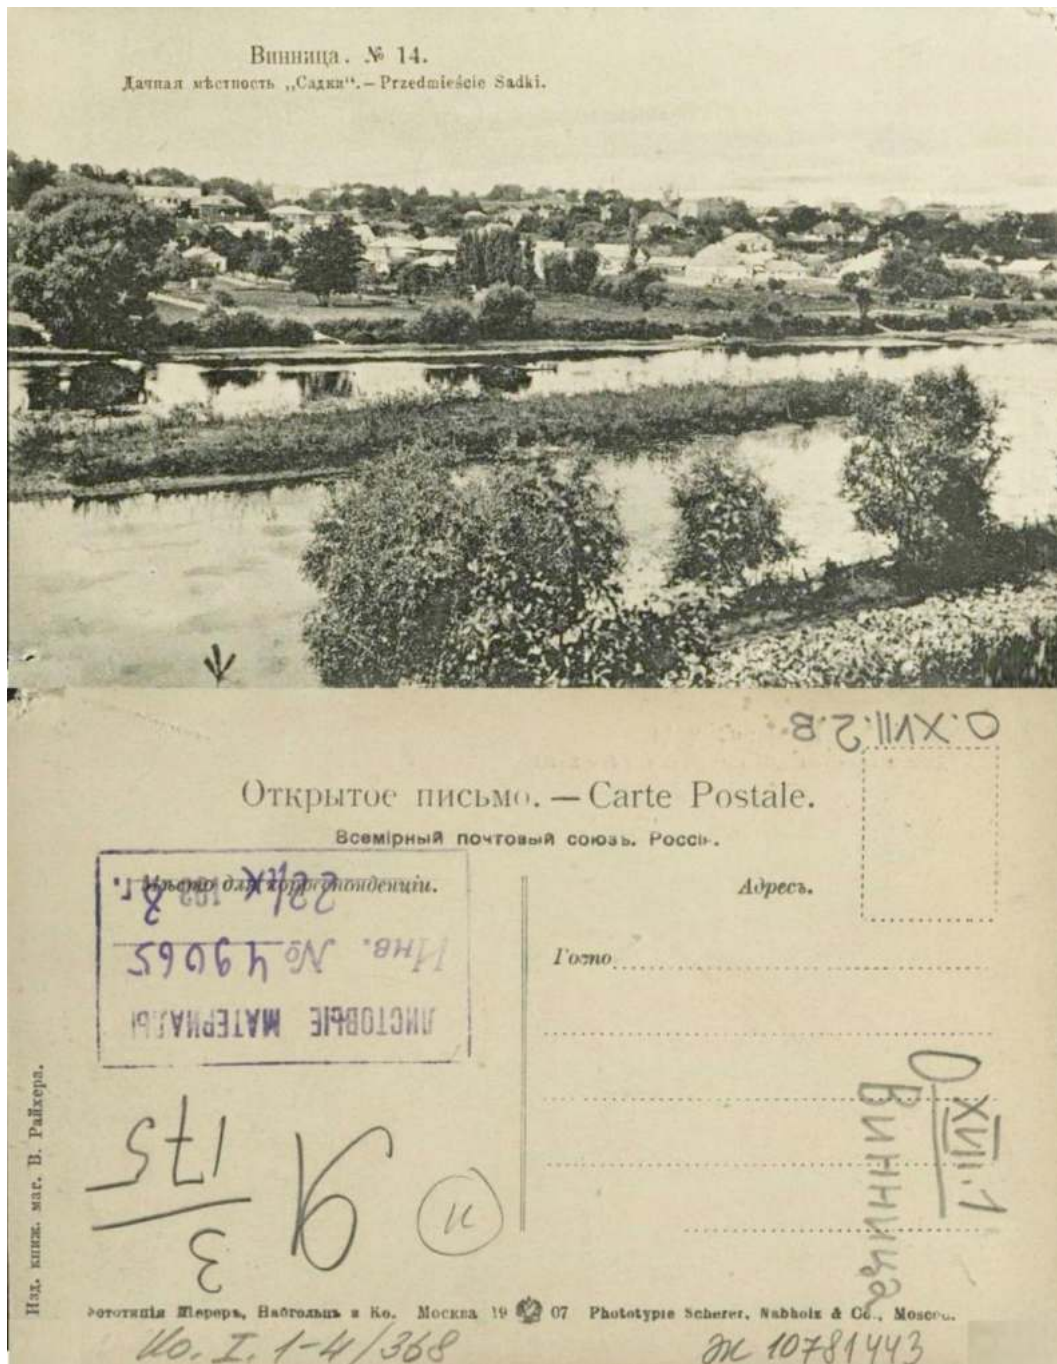 Винница. № 14.
Дачная мѣстность „Садки“.—Przedmieście Sadki.
О.XVII.2.В
Открытое письмо. — Carte Postale.
Всемірный почтовый союзъ. Россія.
Мѣсто для корреспонденціи.
22/IX 193 г.
Инв. № 49065
ЛИСТОВЫЕ МАТЕРИАЛЫ
Адресъ.
О XVII.1
Винница
Изд. книж. маг. В. Райхера.
Я 175
3
11
Фототипія Шереръ, Набгольцъ и Ко. Москва 19 07 Phototypie Scherer, Nabholz & Co., Moscou.
Ио. I. 1-4/368
Ж 10781443